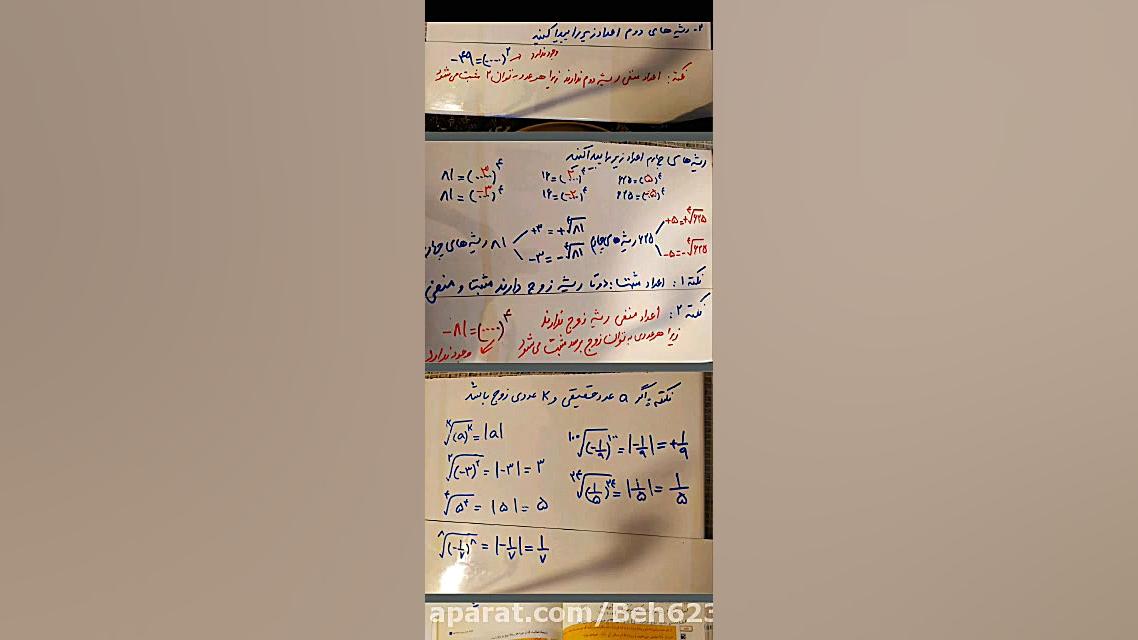 ۲- ریشه های دوم اعداد زیر را پیدا کنید
-۴۹ = (....)^۲ → وجود ندارد
نکته: اعداد منفی ریشه دوم ندارند زیرا هر عدد به توان ۲ مثبت می شود
ریشه های چهارم اعداد زیر را پیدا کنید
۶۲۵ = (۵)^۴ ۱۶ = (۲)^۴ ۸۱ = (۳)^۴
۶۲۵ = (-۵)^۴ ۱۶ = (-۲)^۴ ۸۱ = (-۳)^۴
ریشه های چهارم ۶۲۵ +۵ = +∜۶۲۵ -۵ = -∜۶۲۵
ریشه های چهارم ۸۱ +۳ = +∜۸۱ -۳ = -∜۸۱
نکته ۱: اعداد مثبت دو تا ریشه زوج دارند مثبت و منفی
نکته ۲: اعداد منفی ریشه زوج ندارند
زیرا هر عددی به توان زوج برسد مثبت می شود
-۸۱ = (....)^۴ وجود ندارد
نکته: اگر a عدد حقیقی و K عددی زوج باشد
^K√(a)^K = |a|
^۲√(-۳)^۲ = |-۳| = ۳
^۴√۵^۴ = |۵| = ۵
^۸√(-۱/۷)^۸ = |-۱/۷| = ۱/۷
^۱۰۰√(-۱/۹)^۱۰۰ = |-۱/۹| = +۱/۹
^۲۴√(۱/۵)^۲۴ = |۱/۵| = ۱/۵
aparat.com/Beh623